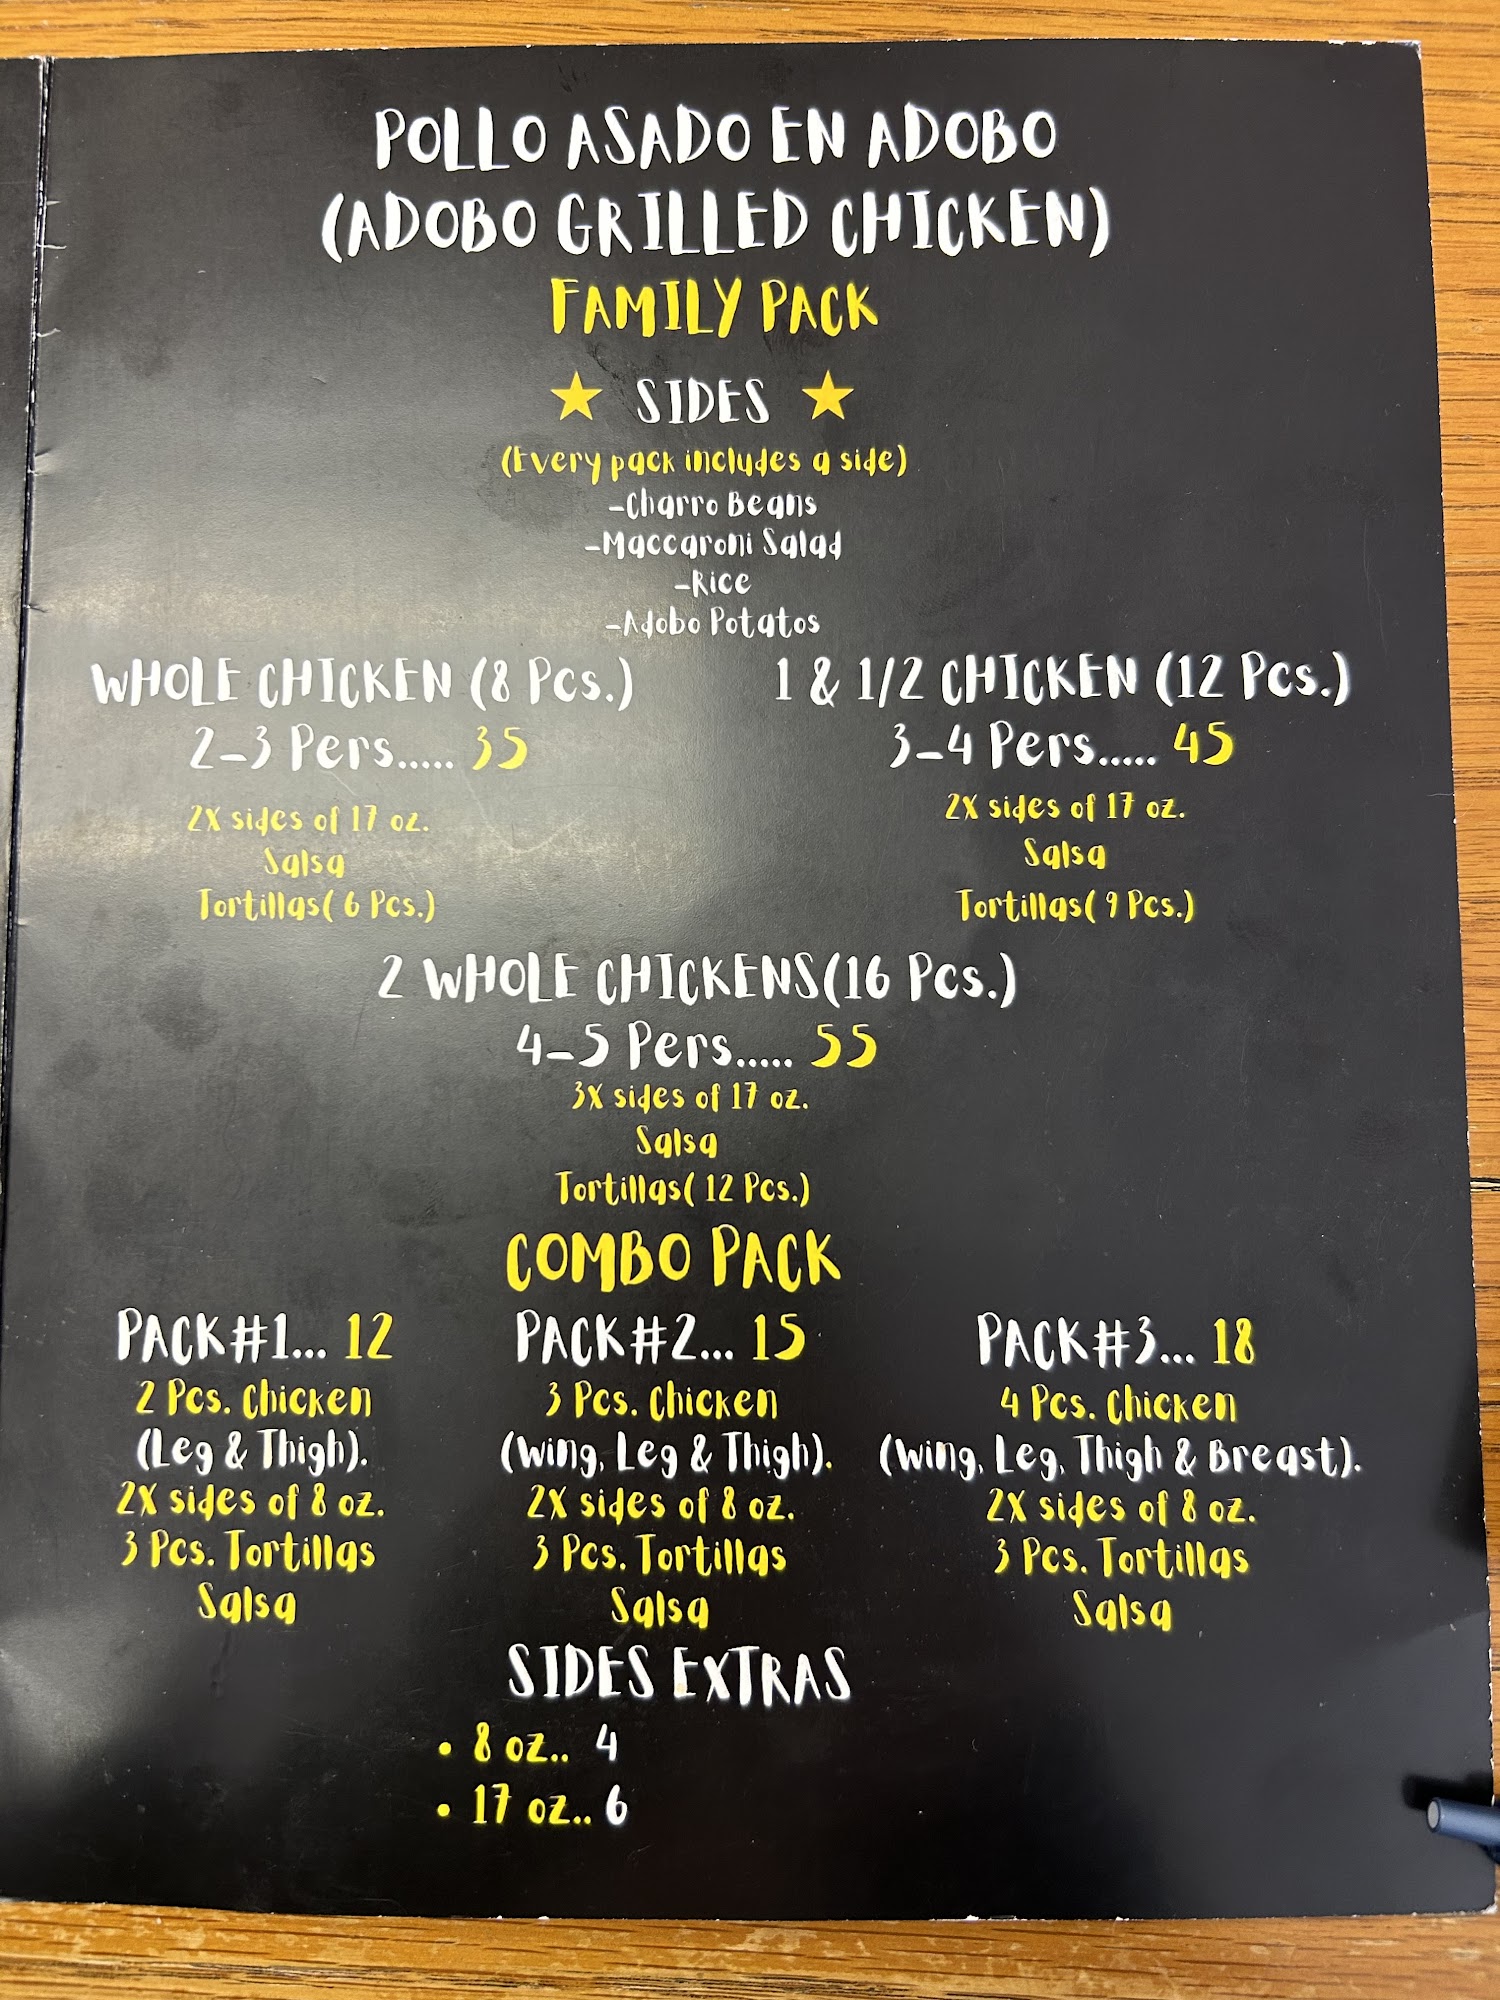 POLLO ASADO EN ADOBO
(ADOBO GRILLED CHICKEN)
FAMILY PACK
SIDES
(Every pack includes a side)
-Charro Beans
-Maccaroni Salad
-Rice
-Adobo Potatos
WHOLE CHICKEN (8 Pcs.)
2-3 Pers..... 35
2X sides of 17 oz.
Salsa
Tortillas( 6 Pcs.)
1 & 1/2 CHICKEN (12 Pcs.)
3-4 Pers..... 45
2X sides of 17 oz.
Salsa
Tortillas( 9 Pcs.)
2 WHOLE CHICKENS(16 Pcs.)
4-5 Pers..... 55
3X sides of 17 oz.
Salsa
Tortillas( 12 Pcs.)
COMBO PACK
PACK#1... 12
2 Pcs. Chicken
(Leg & Thigh).
2X sides of 8 oz.
3 Pcs. Tortillas
Salsa
PACK#2... 15
3 Pcs. Chicken
(Wing, Leg & Thigh).
2X sides of 8 oz.
3 Pcs. Tortillas
Salsa
PACK#3... 18
4 Pcs. Chicken
(Wing, Leg, Thigh & Breast).
2X sides of 8 oz.
3 Pcs. Tortillas
Salsa
SIDES EXTRAS
• 8 oz.. 4
• 17 oz.. 6